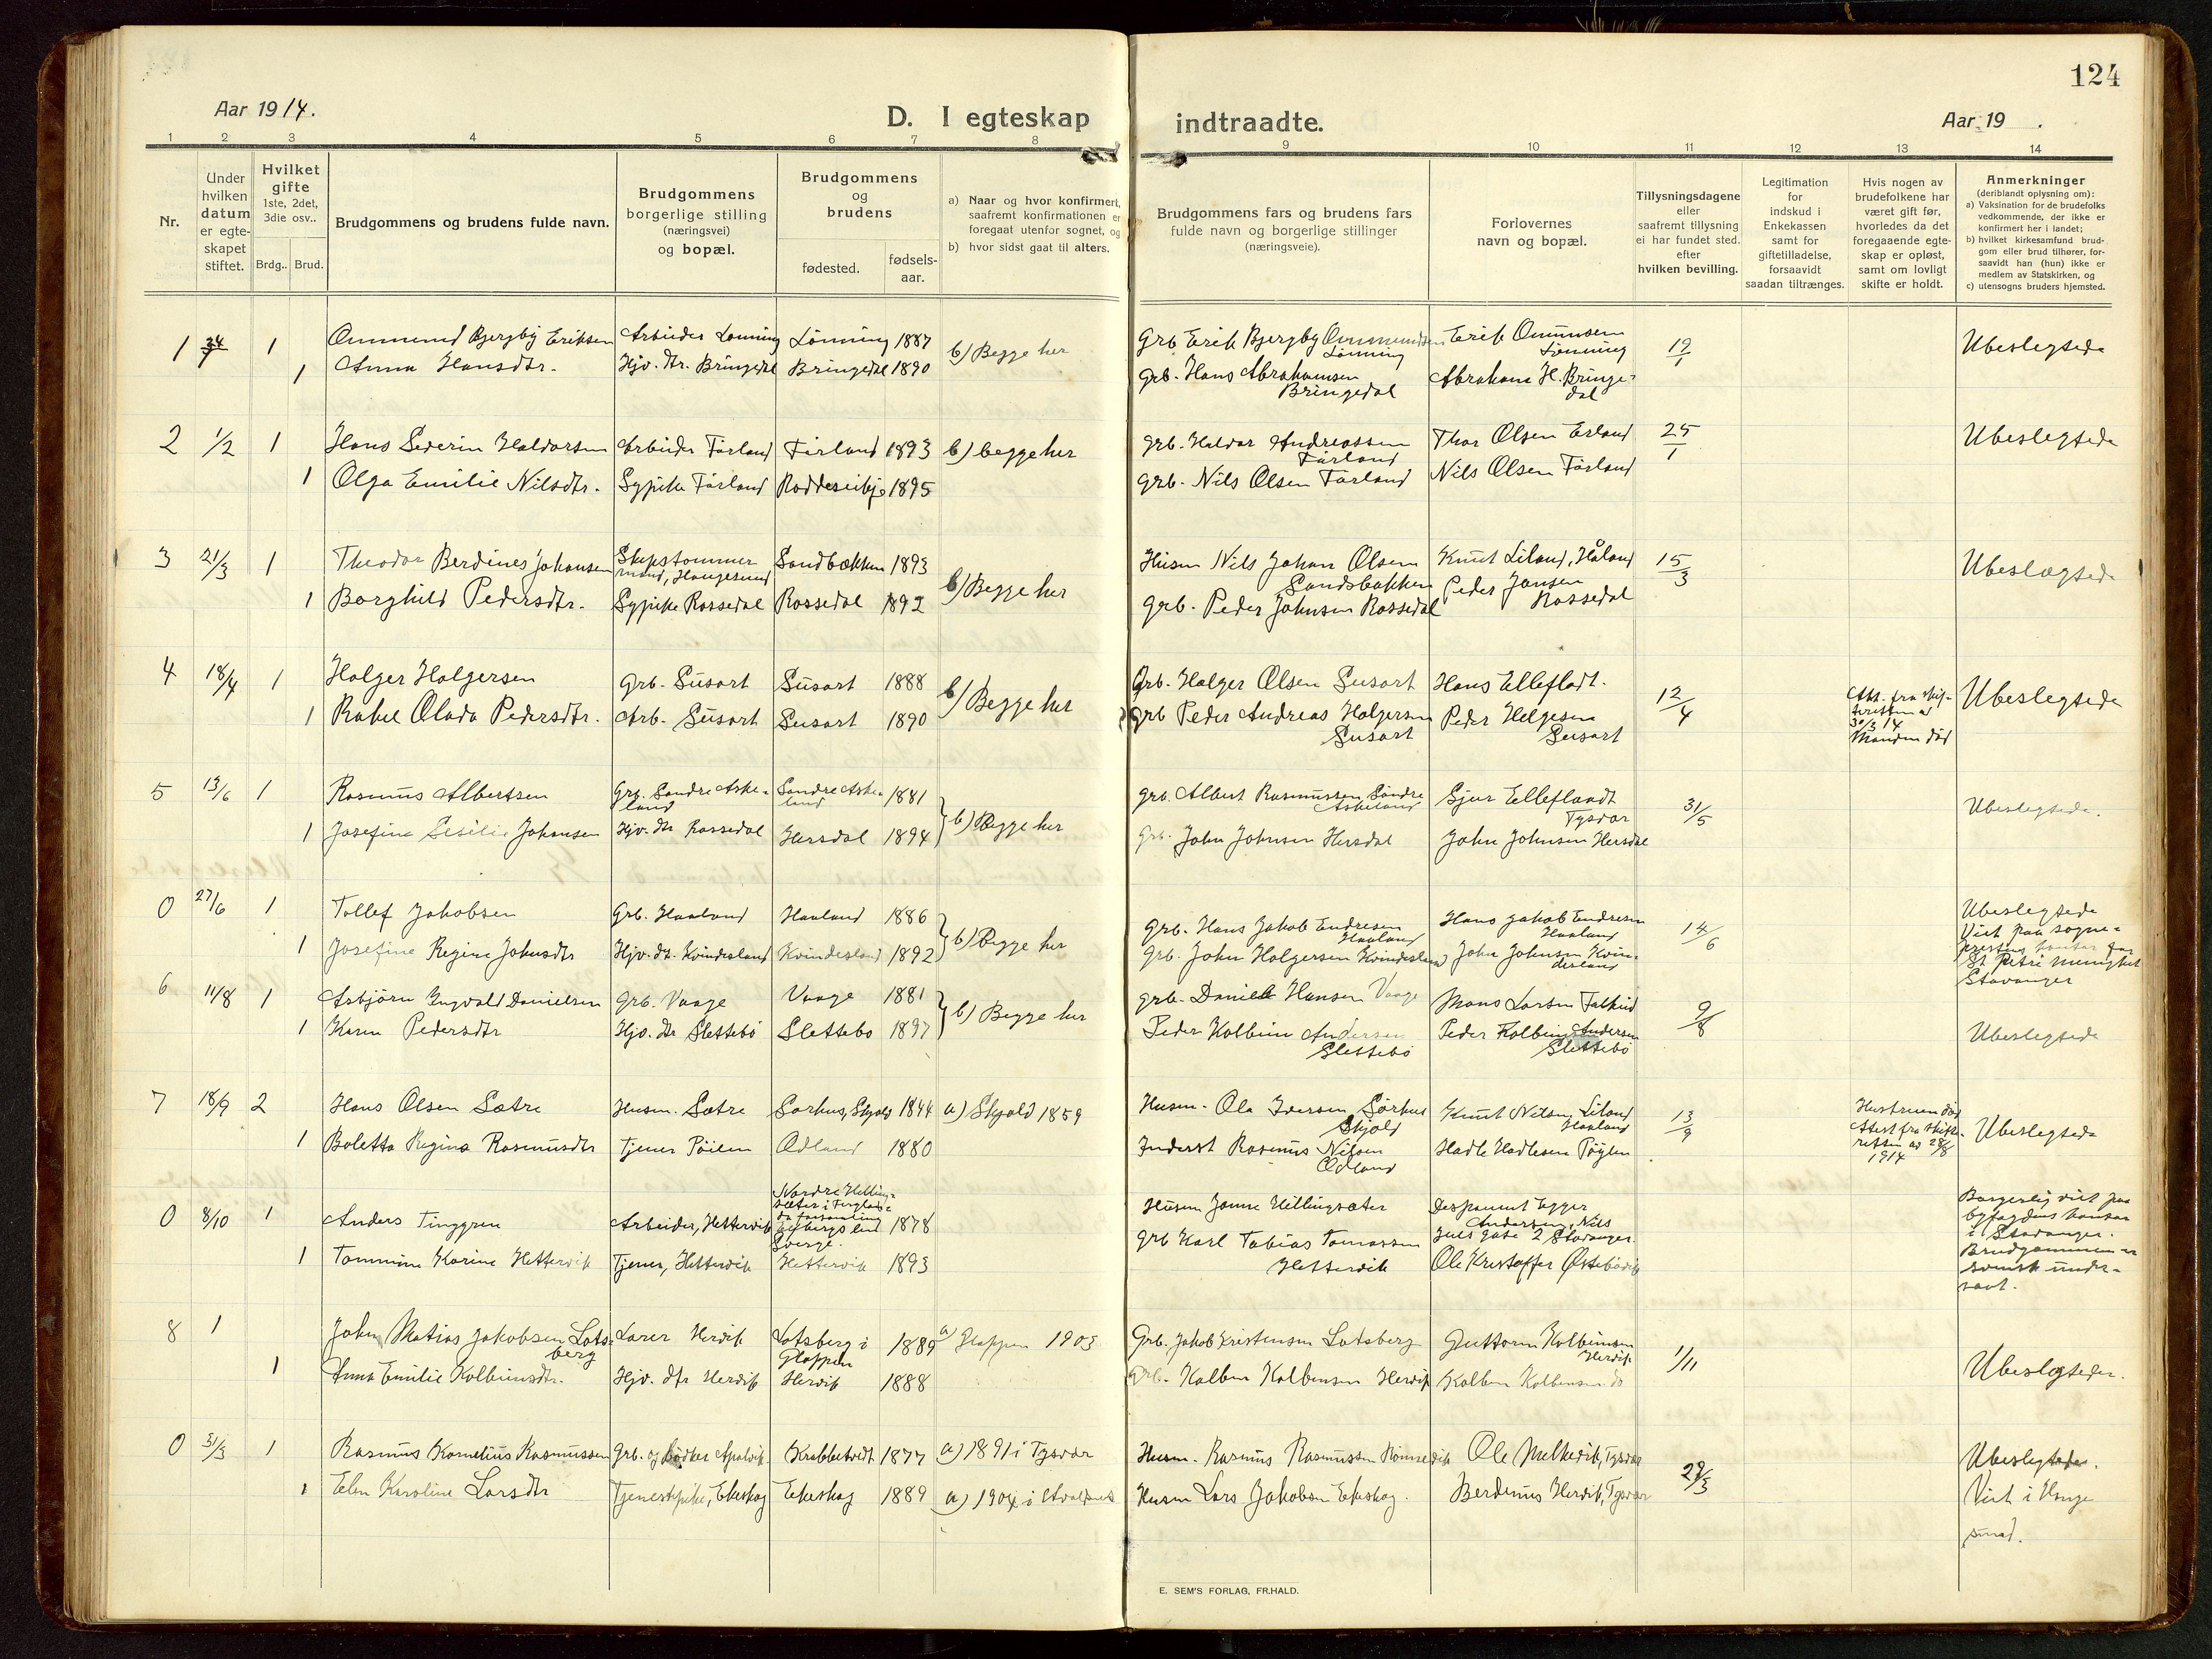 124
Aar 1914.
D. I egteskap indtraadte.
Aar 19 .
1 2 3 4 5 6 7 8 9 10 11 12 13 14
Nr.
Under hvilken datum er egteskapet stiftet.
Hvilket gifte 1ste, 2det, 3die osv..
Brdg.. Brud.
Brudgommens og brudens fulde navn.
Brudgommens borgerlige stilling (næringsvei) og bopæl.
Brudgommens og brudens
fødested.
fødsels-aar.
a) Naar og hvor konfirmert, saafremt konfirmationen er foregaat utenfor sognet, og
b) hvor sidst gaat til alters.
Brudgommens fars og brudens fars fulde navn og borgerlige stillinger (næringsveie).
Forlovernes navn og bopæl.
Tillysningsdagene eller saafremt tillysning ei har fundet sted, efter hvilken bevilling.
Legitimation for indskud i Enkekassen samt for giftetilladelse, forsaavidt saadan tiltrænges.
Hvis nogen av brudefolkene har været gift før, hvorledes da det foregaaende egteskap er opløst, samt om lovligt skifte er holdt.
Anmerkninger (deriblandt oplysning om):
a) Vaksination for de brudefolks vedkommende, der ikke er konfirmert her i landet;
b) hvilket kirkesamfund brudgom eller brud tilhører, forsaavidt han (hun) ikke er medlem av Statskirken, og
c) utensogns bruders hjemsted.
1 1 Ommund Bjergby Eriksen Arbeider Lönning Lönning 1887 b) Begge her Grb Erik Bjergby Ommundsen Lönning Erik Ommundsen Lönning 12/1 Ubeslegtede
1 Anna Hansdtr. Hjv. dtr. Bringedal Bringedal 1890 Grb. Hans Abrahamsen Bringedal Abraham H. Bringedal
2 1/2 1 Hans Severin Haldorsen Arbeider Førland Førland 1893 b) begge her Grb. Haldor Andreassen Førland Thor Olsen Erland 25/1 Ubeslegtede
1 Olga Emilie Nilsdtr. Sypike Førland 1895 Grb. Nils Olsen Førland Nils Olsen Førland
3 21/3 1 Theodor Berdines Johansen Skipstømmermand, Haugesund Sandbækken 1893 b) Begge her Husm Nils Johan Olsen Sandsbakken Knut Liland, Håland 15/3 Ubeslægtede
1 Borghild Pedersdtr. Sypike Rossedal Rossedal 1892 Grb. Peder Johnsen Rossedal Peder Jansen Rossedal
4 18/4 1 Holger Holgersen Grb. Susort Susort 1888 b) Begge her Grb. Holger Olsen Susort Hans Ellefladt. 12/4 Att. fra skifteretten av 30/3 14 Manden död Ubeslegtede
1 Rakel Olada Pedersdtr. Arb. Susort Susort 1890 Grb Peder Andreas Holgersen Susort Peder Helgesen Susort
5 13/6 1 Rasmus Albertsen Grb. Søndre Askeland Søndre Askeland 1881 b) Begge her Grb. Albert Rasmussen Søndre Askeland Sjur Elleflandt Tysvær 31/5 Ubeslegtede.
1 Josefine Sesilie Johansen Hjv. dtr Rossedal Hersdal 1894 Grb. John Johnsen Hersdal John Johnsen Hersdal
0 27/6 1 Tollef Jakobsen Grb. Haaland Haaland 1886 b) Begge her Grb. Hans Jakob Endresen Haaland Hans Jakob Endresen Haaland 14/6 Ubeslegtede Viet paa sogneprestens kontor for St. Petri menighet Stavanger
1 Josefine Regine Johnsdtr Hjv. dt. Kvindesland Kvindesland 1892 Grb. John Holgersen Kvindesland John Johnsen Kvindesland
6 11/8 1 Asbjörn Ingvald Danielsen Grb. Vaage Vaage 1881 b) Begge her Grb. Daniel Hansen Vaage Mons Larsen 9/8 Ubeslegtede
1 Karen Pedersdtr Hjv. dtr Slettebö Slettebö 1897 Peder Kolbein Andersen Slettebö Peder Kolbein Andersen Slettebö
7 18/9 2 Hans Olsen Sætre Husm. Sætre Sørhus, Skjold 1844 a) Skjold 1859 Husm. Ola Iversen Sørhus Skjold Knut Nilsen Liland Haaland 13/9 Hustruen död Attest fra skifteretten av 28/8 1914 Ubeslegtede
1 Boletta Regina Rasmusdtr Tjener Pöilen Ødland 1880 Inderst Rasmus Nilsen Ødland Hadle Hadlesen Pöylen
0 8/10 1 Anders Tinggren Arbeider, Hettervik 1878 Husm Janne Hellingsæter Andersen, Nils Juels gate 2 Stavanger. Borgerlig viet paa byfogdens kontor i Stavanger. Brudgommen er svensk undersaat.
1 Tommine Karine Hettervik Tjener, Hettervik Hettervik 1893 Grb Karl Tobias Tomassen Hettervik Ole Kristoffer Østebövik
8 1 John Matias Jakobsen Lotsberg Lærer Hervik Lotsberg i Gloppen 1889 a) Gloppen 1903 Grb. Jakob Kristensen Lotsberg Guttorm Kolbeinsen Hervik 1/11 Ubeslegteder.
1 Anna Emilie Kolbeinsdtr. Hjv. dtr Hervik Hervik 1888 Grb. Kolben Kolbensen Hervik Kolben Kolbensen do
0 31/3 1 Rasmus Kornelius Rasmussen Grb. og Bödker Apalvik Krabbetvedt 1877 a) 1891 i Tysvær Husm. Rasmus Rasmussen Rönnevik Ole Melkevik, Tysvær 29/3 Ubeslegteder. Viet i Haugesund.
1 Elen Karoline Larsdtr Tjenestepike, Ekeskog Ekeskog 1889 a) 1904 i Avaldsnes Husm Lars Jakobsen Ekeskog. Berdinus Hervik, Tysvær
E. SEM'S FORLAG, FR.HALD.